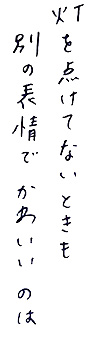 灯を点けてないときも
別の表情でかわいいのは